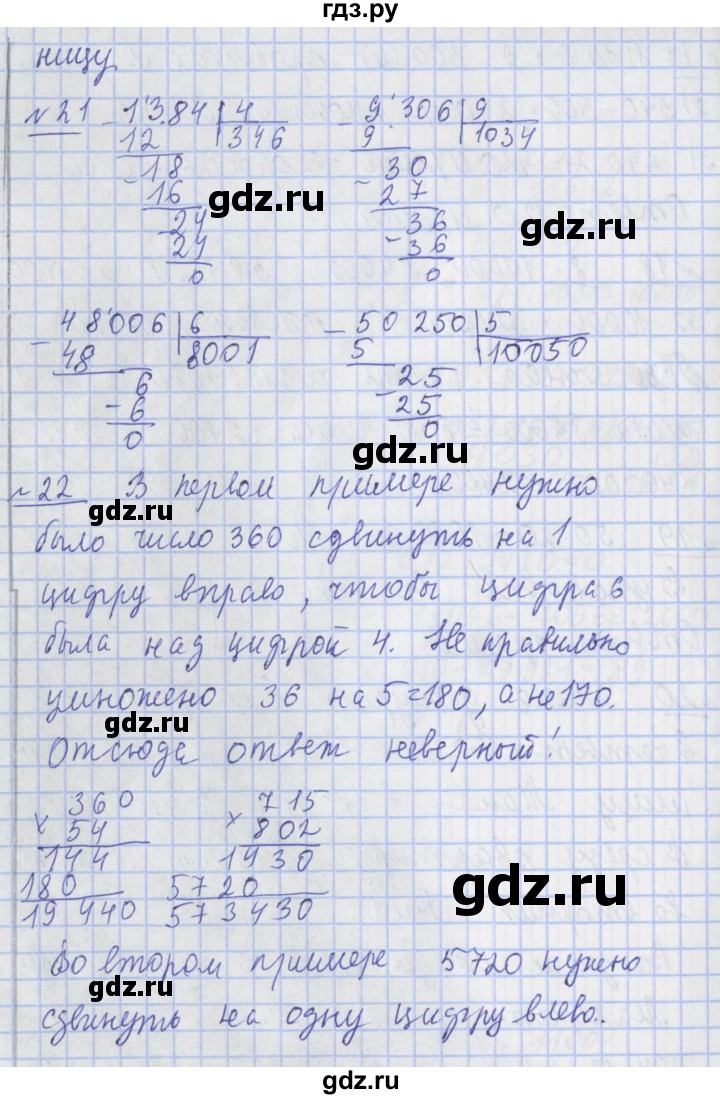 гдз.ру
ницу
№21 1384 | 4
12 346
18
16
24
24
0
9306 | 9
9 1034
30
27
36
36
0
gdz.ru
gdz.ru
48006 | 6
48 8001
6
- 6
0
50 250 | 5
5 10050
25
25
0
gdz.ru
№22 В первом примере нужно
gdz.ru
было число 360 сдвинуть на 1
цифру вправо, чтобы цифра 6
была над цифрой 4. Не правильно
умножено 36 на 5=180, а не 170.
gdz.ru
Отсюда ответ неверный!
360
x 54
144
180
19 440
715
x 802
1430
5720
573430
gdz.ru
Во втором примере 5720 нужно
gdz.ru
сдвинуть на одну цифру влево.
gdz.ru